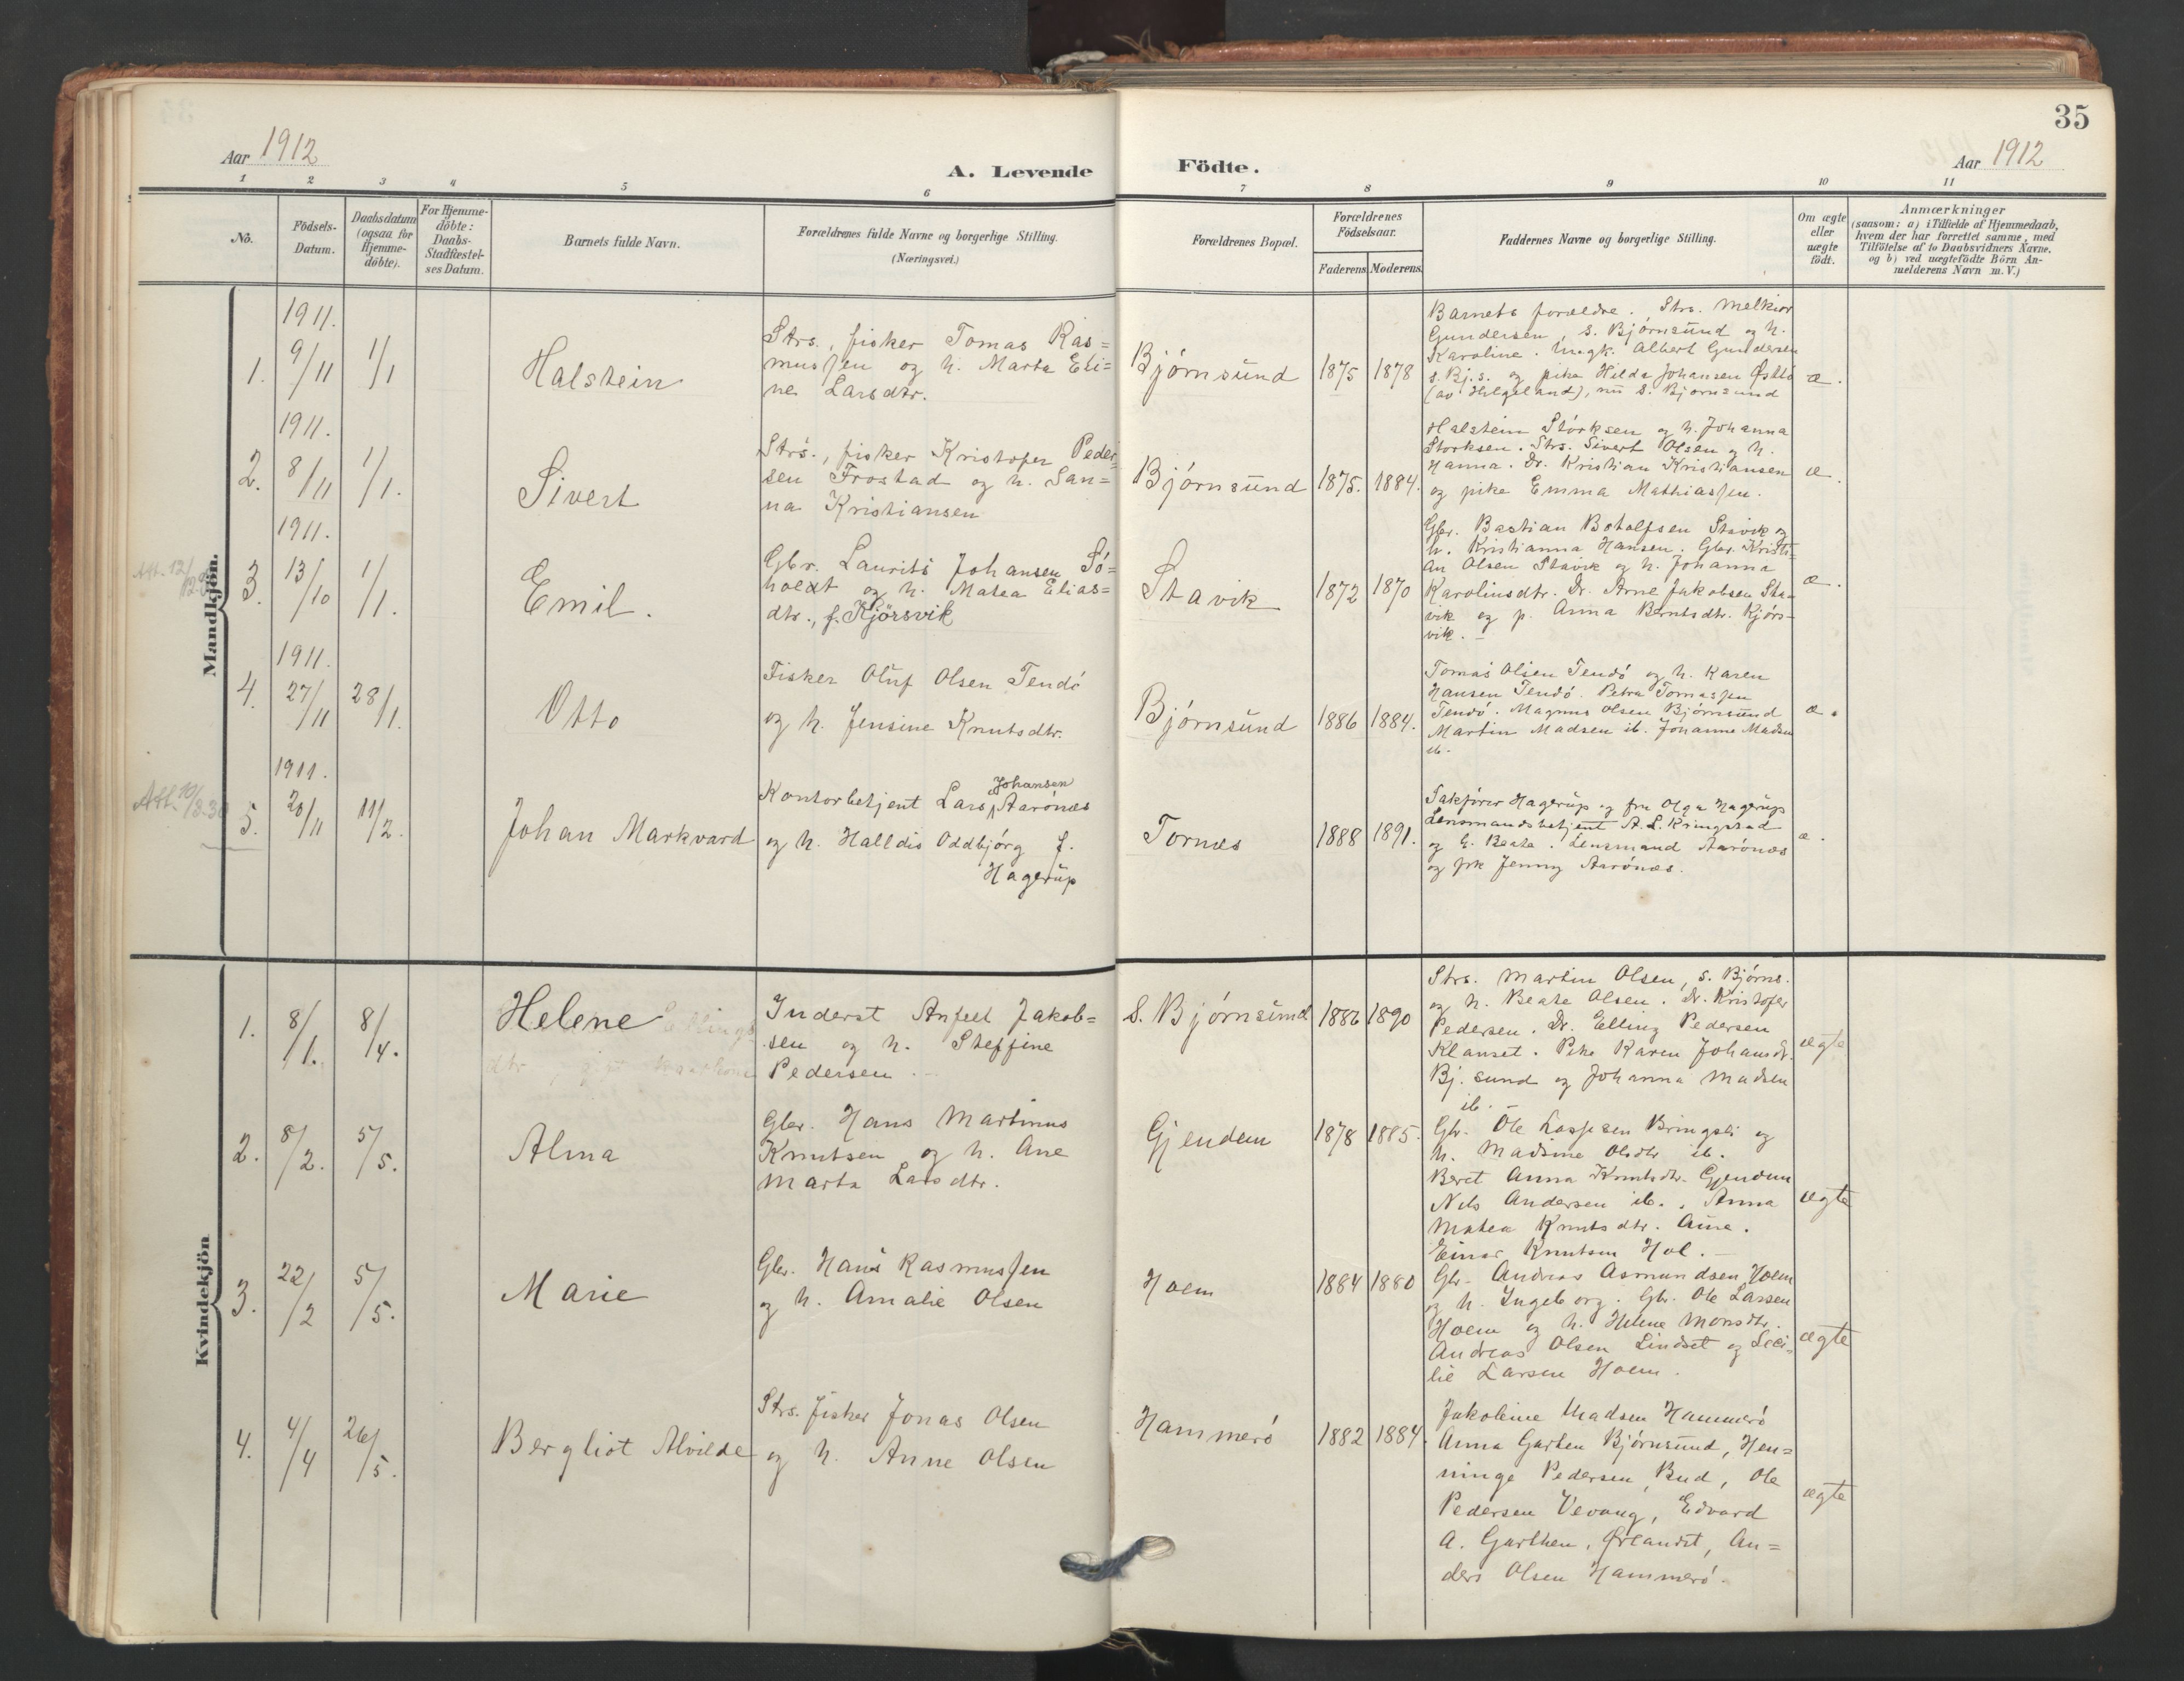 35
Aar 1912
A. Levende Födte.
Aar 1912
1 2 3 4 5 6 7 8 9 10 11
No.
Födsels-
Datum.
Daabsdatum
(ogsaa for
Hjemme-
döbte).
For Hjemme-
döbte:
Daabs-
Stadfæstel-
ses Datum.
Barnets fulde Navn.
Forældrenes fulde Navne og borgerlige Stilling.
(Næringsvei.)
Forældrenes Bopæl.
Forældrenes
Födselsaar.
Faderens. Moderens.
Faddernes Navne og borgerlige Stilling.
Om ægte
eller
uægte
födt.
Anmærkninger
(saasom: a) i Tilfælde af Hjemmedaab,
hvem der har forrettet samme, med
Tilföielse af to Daabsvidners Navne,
og b) ved uægtefödte Börn An-
melderens Navn m.V.)
Mandkjön.
1911.
1. 9/11 1/1
Halstein
Strs., fisker Tomas Ras=
mussen og h. Marta Eli=
ne Larsdtr.
Bjørnsund
1875 1878
Barnets forældre. Strs. Melkior
Gundersen, S. Bjørnsund og h.
Karoline. Ungk. Albert Gundersen
S. Bj.s. og pike Hilda Johansen
(av Helgeland), nu S. Bjørnsund
æ.
1911.
2. 8/11 1/1.
Sivert
Strs., fisker Kristofer Peder=
sen Frostad og h. San=
na Kristiansen
Bjørnsund
1875. 1884.
Halstein Storksen og h. Johanna
Storksen. Strs. Sivert Olsen og h.
Hanna. Dr. Kristian Kristiansen
og pike Emma Mathiassen.
æ.
1911.
Att. 12/
3. 13/10 1/1.
Emil.
Gbr. Laurits Johansen Sö=
holdt og h. Matea Elias=
dtr., f. Kjörsvik
Stavik
1872 1870
Gbr. Bastian Botolfsen Stavik og
h. Kristianna Hansen. Gbr. Kristi=
an Olsen Stavik og h. Johanna
Karolinsdtr. Dr. Arne Jakobsen Sta=
vik og p. Anna Berntsdtr. Kjörs=
vik. -
æ.
1911.
4. 27/11 28/1.
Otto
Fisker Oluf Olsen Tendö
og h. Jensine Knutsdtr.
Bjørnsund
1886 1884.
Tomas Olsen Tendö og h. Karen
Hansen Tendö. Petra Tomassen
Tendö. Magnus Olsen Bjørnsund
Martin Madsen ib. Johanne Madsen
ib.
æ.
1911.
Att. 10/3-30
5. 20/11 11/2.
Johan Markvard
Johansen
Kontorbetjent Lars Aarönes
og h. Halldis Oddbjörg f.
Hagerup
Tornes
1888 1891.
Sakförer Hagerup og fru Olga Hagerup
Lensmandsbetjent A. L. Kringstad
og h. Beate. Lensmand Aarönes
og frk Jenny Aarönes.
æ.
Kvindekjön
1. 8/1. 8/4.
Helene
Inderst Anfeld Jakob=
sen og h. Steffine
Pedersen.
S. Bjørnsund
1886 1890
Strs. Martin Olsen, S. Bjørns.
og h. Beate Olsen. Dr. Kristofer
Pedersen. Dr. Elling Pedersen
Klauset. Pike Karen Johansdr.
Bj. sund og Johanna Madsen
ib. -
ægte
2. 8/2. 5/5.
Alma
Gbr. Hans Martinus
Knutsen og h. Ane
Marta Larsdtr.
Gjendem
1878 1885.
Gbr. Ole Lassesen Bringsli og
h. Madsine Olsdtr ib.
Beret Anna Knutsdtr. Gjendem
Nils Andersen ib., Anna
Matea Knutsdtr.
Einar Knutsen Hol. -
ægte
3. 22/2 5/5.
Marie
Gbr. Hans Rasmussen
og h. Amalie Olsen
Hoem
1884 1880
Gbr. Andreas Asmundsen Hoem
og h. Ingeborg. Gbr. Ole Larsen
Hoem og h. Helene Monsdtr.
Andreas Olsen Lindset og Seci=
lie Larsen Hoem.
ægte
4. 4/4 26/5.
Bergliot Alvilde
Strs. fisker Jonas Olsen
og h. Anne Olsen
Hammerö
1882 1884.
Jakobine Madsen Hammerö
Anna Garten Bjørnsund, Hen=
ninge Pedersen, Bud, Ole
Pedersen Vevang, Edvard
A. Garthen, Ørlandet, An=
ders Olsen Hammerö.
ægte